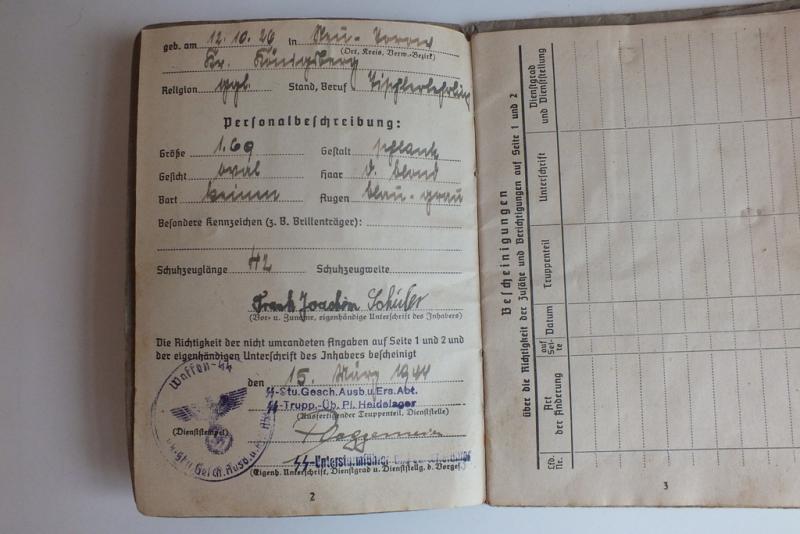 geb. am 12.10.26 in Neu-
(Ort, Kreis, Verw.-Bezirk)
Kr. Königsberg
Religion ggl. Stand, Beruf Tischlerlehrling
Personalbeschreibung:
Größe 1.69 Gestalt schlank
Gesicht oval Haar d. blond
Bart keinen Augen blau-grau
Besondere Kennzeichen (z. B. Brillenträger):
Schuhzeuglänge 42 Schuhzeugweite
Frank Joachim Schüler
(Vor- u. Zuname, eigenhändige Unterschrift des Inhabers)
Die Richtigkeit der nicht umrandeten Angaben auf Seite 1 und 2 und
der eigenhändigen Unterschrift des Inhabers bescheinigt
den 15. März 1944
SS-Stu.Gesch.Ausb.u.Ers.Abt.
SS-Trupp.-Üb. Pl. Heidelager
(Ausfertigender Truppenteil, Dienststelle)
Waffen-SS
(Dienststempel)
SS-Untersturmführer
(Eigenh. Unterschrift, Dienstgrad u. Dienststellg. d. Vorges.)
2
Bescheinigungen
über die Richtigkeit der Zusätze und Berichtigungen auf Seite 1 und 2
Lfd. Nr.
Art der Änderung
auf Sei- te
Datum
Truppenteil
Unterschrift
Dienstgrad und Dienststellung
3